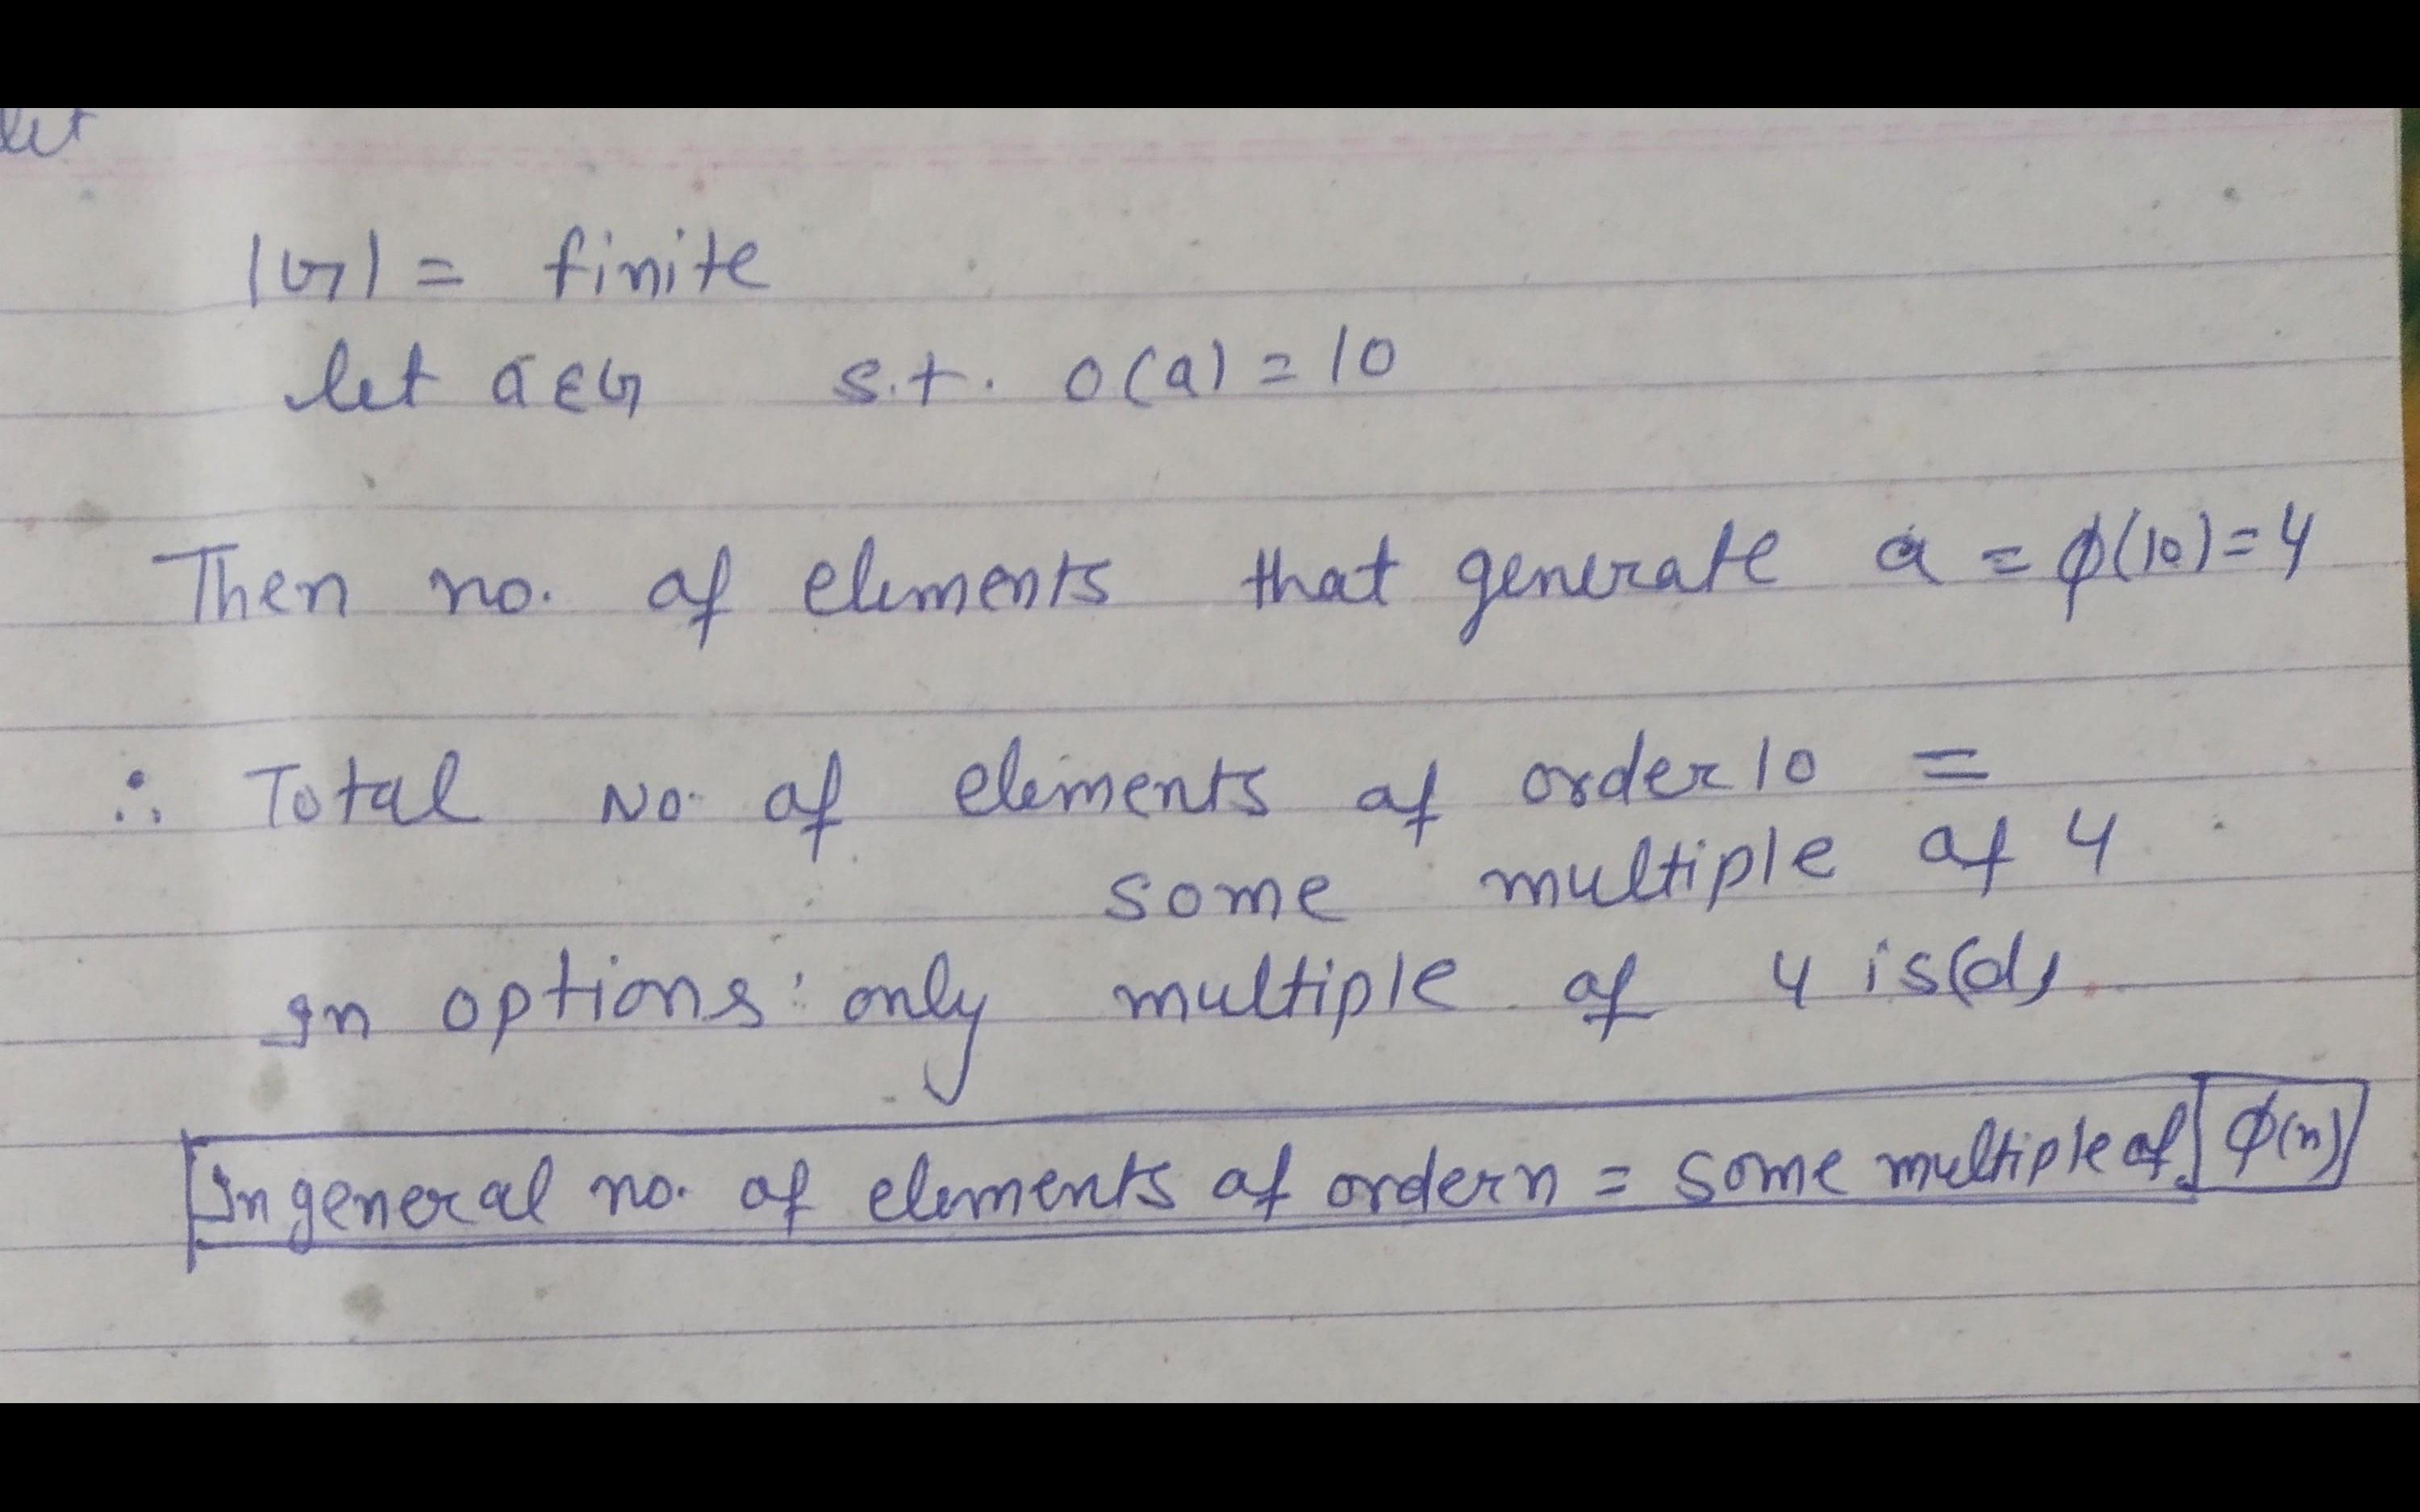 let
|G| = finite
let a ∈ G s.t. o(a) = 10
Then no. of elements that generate a = ϕ(10) = 4
∴ Total No. of elements of order 10 =
some multiple of 4
In options: only multiple of 4 is (d)
In general no. of elements of order n = some multiple of ϕ(n)